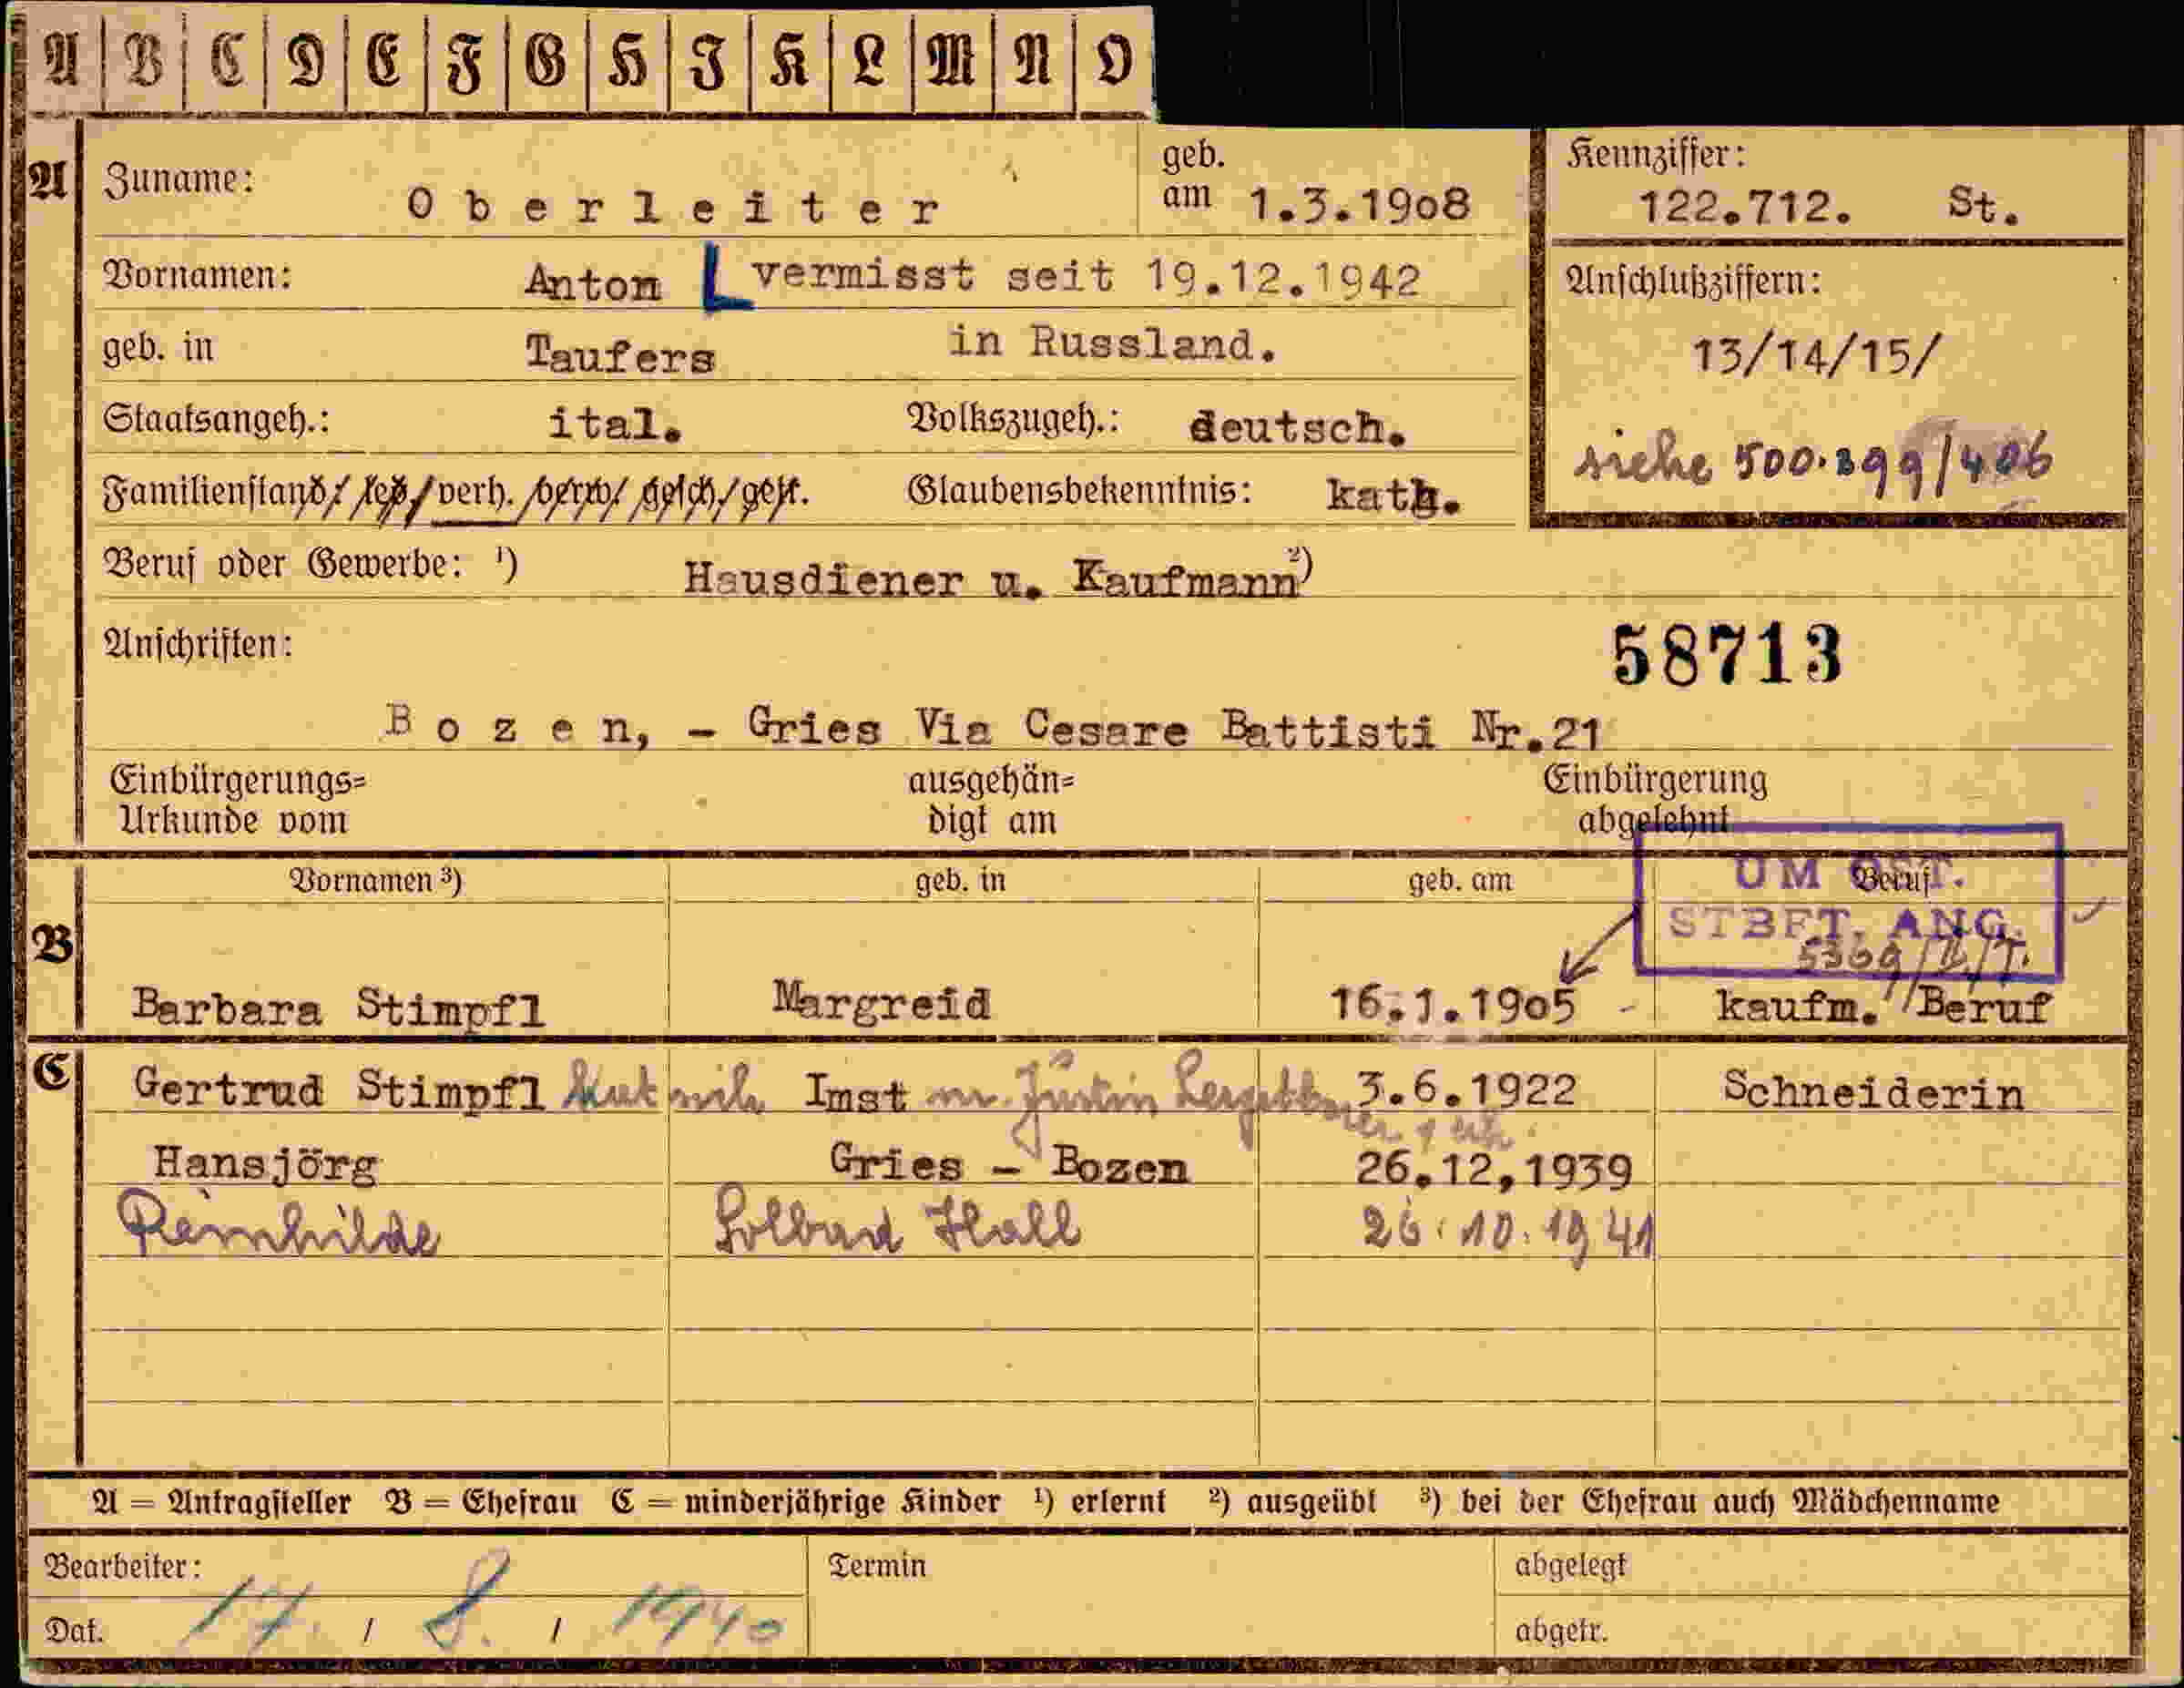 A B C D E F G H I K L M N O
A Zuname: Oberleiter geb. am 1.3.1908 Kennziffer: 122.712. St.
Vornamen: Anton vermisst seit 19.12.1942 Anschlußziffern:
geb. in Taufers in Russland. 13/14/15/
Staatsangeh.: ital. Volkszugeh.: deutsch. siehe 500.399/406
Familienstand/ led/ verh. /verw/ gesch/ getr. Glaubensbekenntnis: kath.
Beruf oder Gewerbe: 1) Hausdiener u. Kaufmann 2)
Anschriften: 58713
Bozen, - Gries Via Cesare Battisti Nr.21
Einbürgerungs= ausgehän= Einbürgerung
Urkunde vom digt am abgelehnt
Vornamen 3) geb. in geb. am Beruf
UM OST.
STBFT. ANG.
B
Barbara Stimpfl Margreid 16.1.1905 - kaufm. Beruf
C Gertrud Stimpfl hat sich Imst m. Justin 3.6.1922 Schneiderin
Hansjörg Gries - Bozen 26.12,1939
Reinhilde Solbad Hall 26.10.1941
A = Antragsteller B = Ehefrau C = minderjährige Kinder 1) erlernt 2) ausgeübt 3) bei der Ehefrau auch Mädchenname
Bearbeiter: Termin abgelegt
Dat. 17. / 8. / 1940 abgetr.